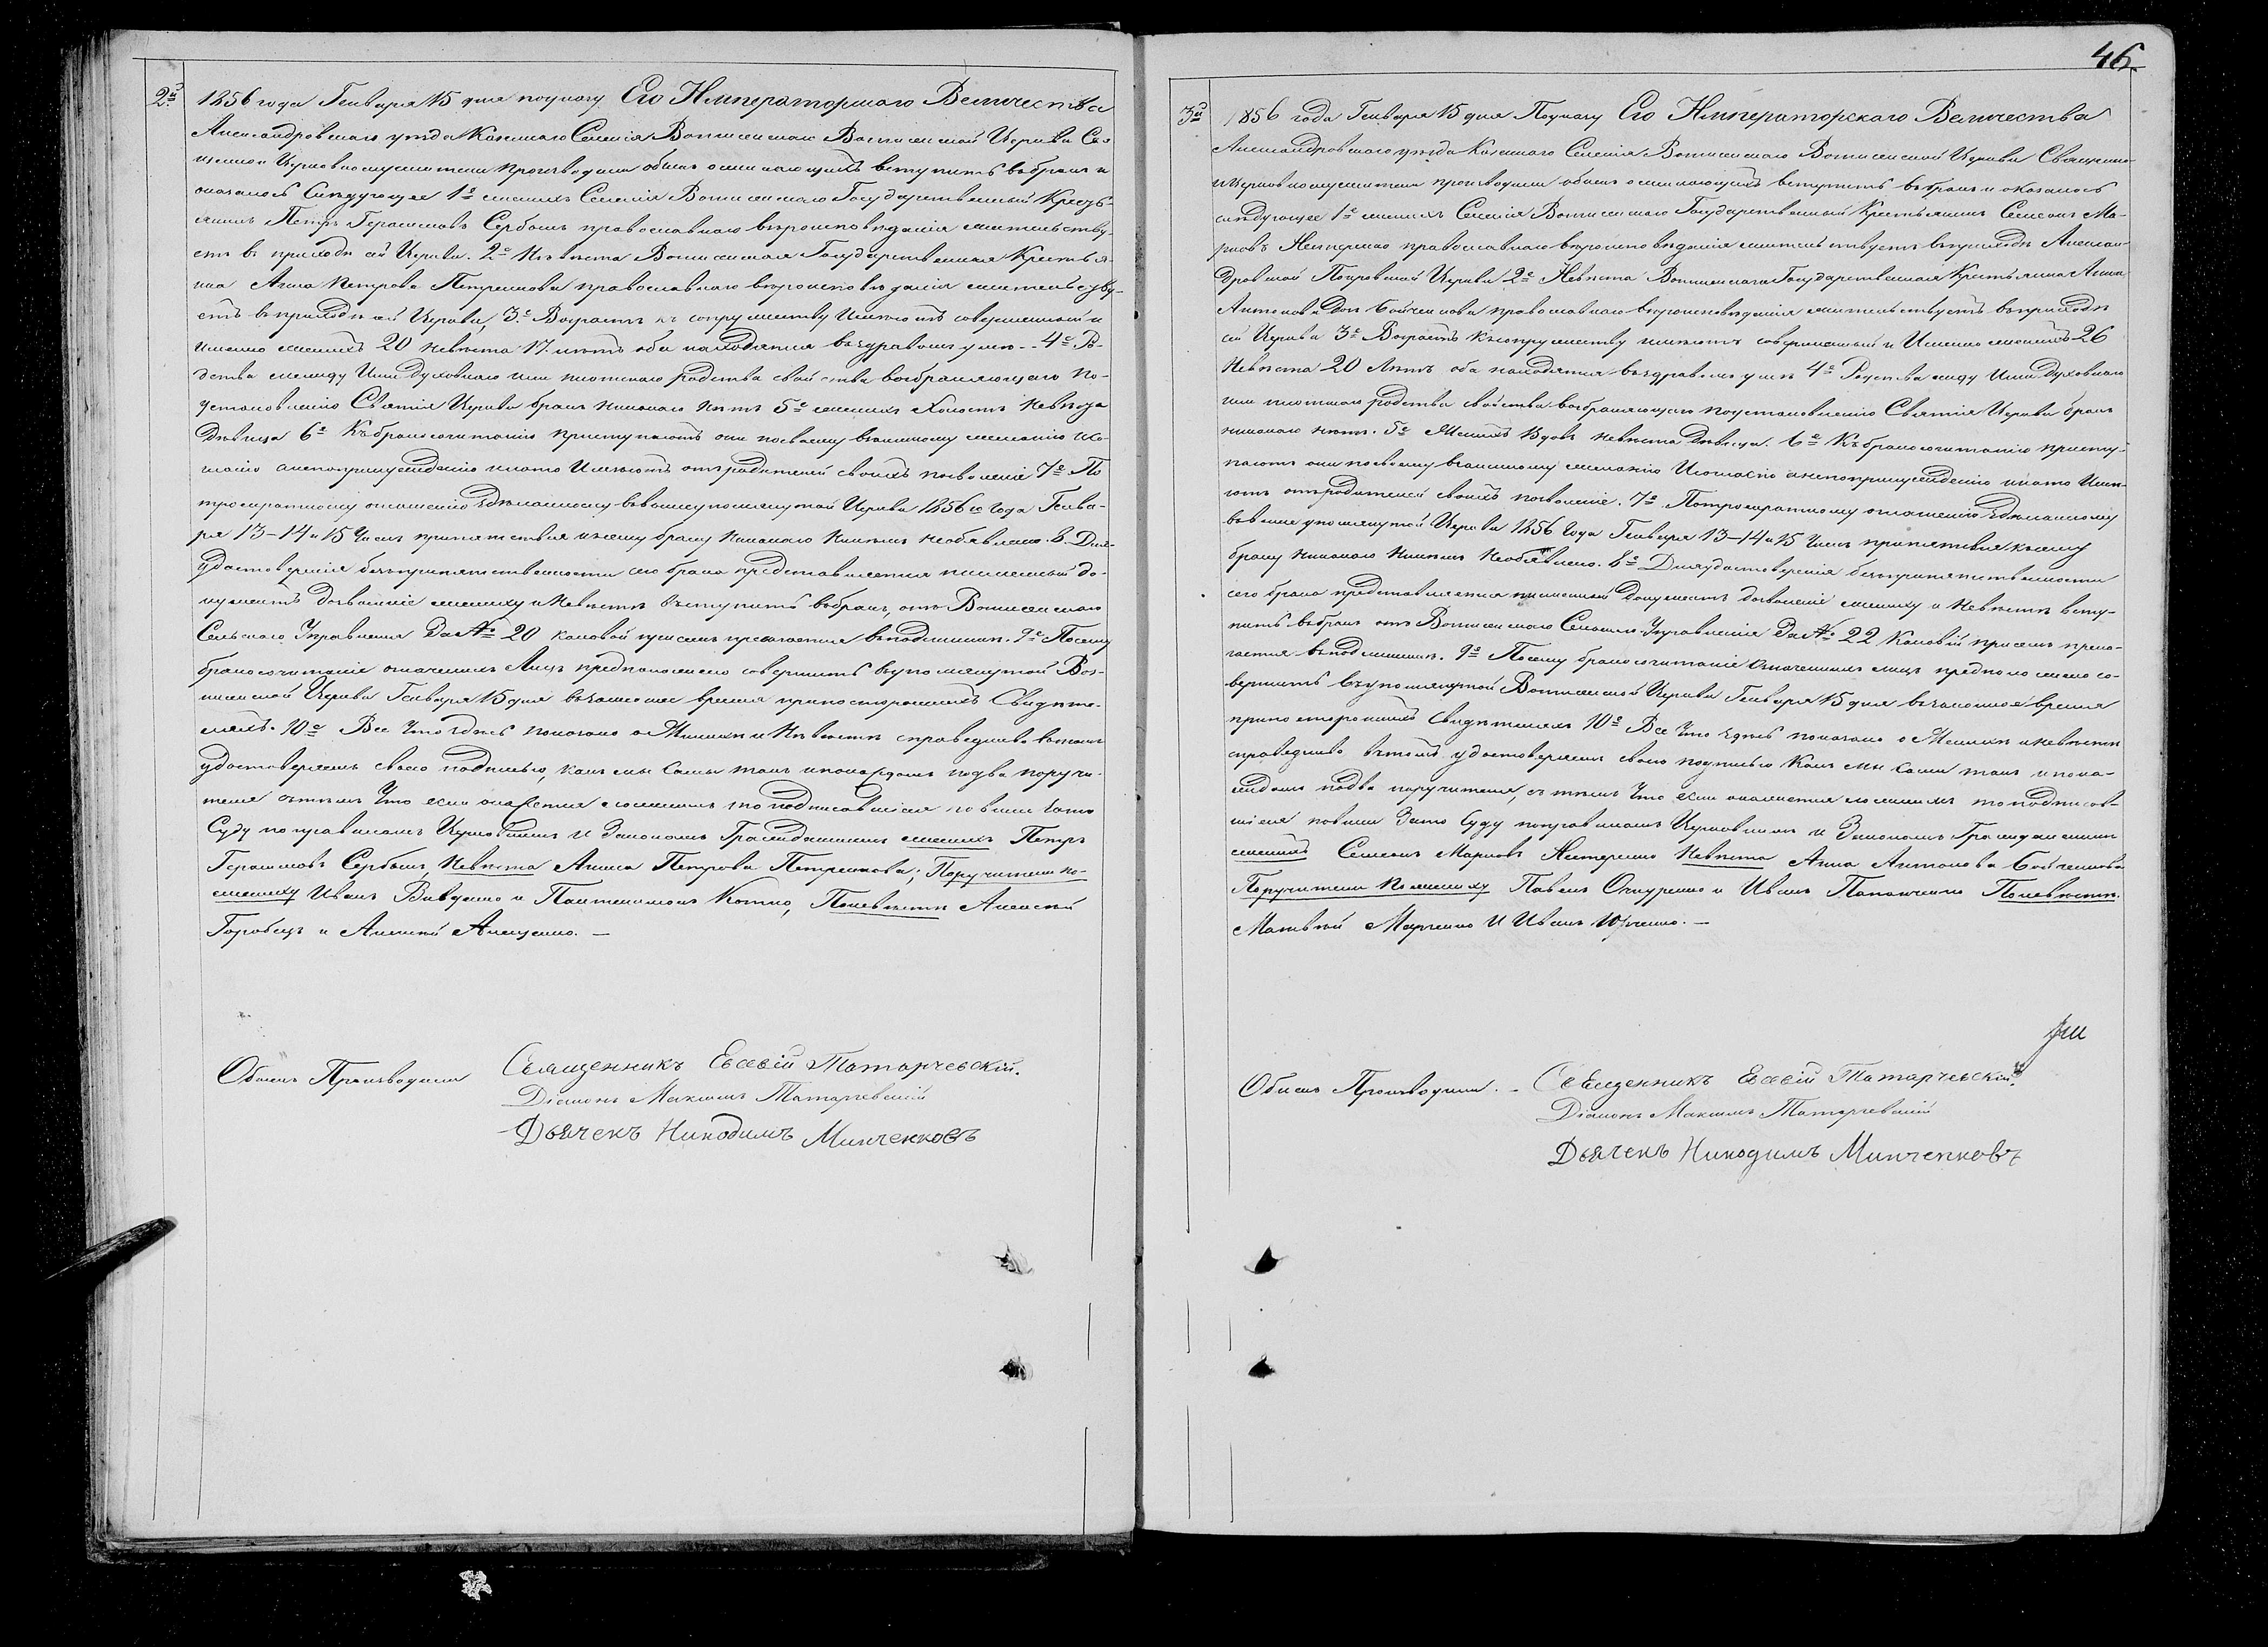 2й 1856 года Генваря 15 дня поуказу Его Императорскаго Величества
Александровскаго уезда Казеннаго Селенія Вознесенскаго Вознесенской Церкви Свя
щенно и Церковнослужители производили обыскъ о желающихъ вступить въбракъ и
оказалось Следующее 1е женихъ Селенія Вознесенскаго Государственный Крестья-
нинъ Петръ Герасимовъ Сербинъ православнаго вероисповѣданія жительству-
етъ въ приходѣ сей Церкви. 2е Невѣста Вознесенская Государственная Крестья-
нка Анна Петрова Петренкова православнаго вѣроисповѣданія жительству-
етъ въприходѣ сей Церкви, 3е Возрастъ къ супружеству Имѣютъ совершенный и
именно женихъ 20 невѣста 17 лѣтъ оба находятся въздравомъ умѣ. - 4е Ро-
дства между Ими Духовнаго или плотскаго родства свойства возбраняющаго По-
установленію Святія Церкви бракъ никакого нѣтъ 5е женихъ Холостъ Невѣста
Дѣвица 6е Къбракосочетанію приступаютъ они посвоему взаимному желанію исо-
гласію анепопринужденію инато Имѣютъ отъ родителей своихъ позволеніе 7е По
троекратному оглашенію Здѣланному въвышеупомянутой Церкви 1856го Года Генва-
ря 13-14 и 15 Числъ препятствія ксему браку никакого никѣмъ необявлено. 8. Для
удостоверенія безпрепятственности сего брака представляется писменный до-
кументъ дозволеніе жениху и Невѣстѣ вступить въбракъ, отъ Вознесенскаго
Сельскаго Управленія За № 20 каковой присемъ прилагается въподлинникѣ. 9е Посему
бракосочетаніе означенныхъ Лицъ предположено совершить въупомянутой Воз-
несенской Церкви Генваря 15 дня възаконное время припостороннихъ Свидѣте-
ляхъ. 10е Все Что здѣсь показано о Женихѣ и Невѣстѣ справедливо вътомъ
удостоверяемъ своею подписью, какъ мы Сами такъ ипокаждомъ подва поручи-
теля сътѣмъ Что если окажется ложнымъ то подписавшіеся повинны Зато
Суду поправиламъ Церковнымъ и Законамъ Гражданскимъ женихъ Петръ
Герасимовъ Сербинъ, Невѣста Анна Петрова Петренкова; Поручители по-
жениху Иванъ Вивденко и Пантелимонъ Котко, Поневѣстѣ Алексѣй
Горобецъ и Алексѣй Алещенко. -
Обыскъ Производили Священникъ Евсевій Татарчевскій.
Діаконъ Максимъ Татарчевскій
Дьячекъ Никодимъ Минченковъ
46.
3й 1856 года Генваря 15 дня Поуказу Его Императорскаго Величества
Александровскаго уезда Казеннаго Селенія Вознесенскаго Вознесенской Церкви Священно-
и Церковнослужители производили обыскъ о желающихъ вступить въбракъ и оказалось
слѣдующее 1е женихъ Селенія Вознесенскаго Государственный Крестьянинъ Семенъ Ма-
рковъ Нестеренко православнаго вѣроисповѣданія жительствуетъ въприходѣ Алексан-
дровской Покровской Церкви 2е Невѣста Вознесенская Государственная Крестьянка Анна
Антонова Дочь Бойченкова православнаго вѣроисповѣданія жительствуетъ въприходѣ
сей Церкви 3е Возрастъ Късупружеству имѣютъ совершенный и Именно женихъ 26
Невѣста 20 Лѣтъ оба находятся въздравомъ умѣ 4е Родства между Ими Духовнаго
или плотскаго родства свойства возбраняющаго поустановленію Святія Церкви бракъ
никакого нѣтъ. 5е Женихъ Вдовъ невѣста Дѣвица. 6е Къбракосочетанію присту-
паютъ они посвоему взаимному желанію Исогласію анепопринужденію инато Имѣ-
ютъ отъродителей своихъ позволеніе. 7е Потроекратному оглашенію Здѣланному
въвышеупомянутой Церкви 1856 Года Генваря 13-14 и 15 Числъ препятствія ксему
браку никакого никѣмъ Необявлено. 8е Дляудостоверенія безпрепятственности
сего брака представляется писменный Документъ дозволеніе жениху и Невѣстѣ всту-
пить въбракъ отъ Вознесенскаго Сельскаго Управленія За № 22 Каковій присемъ прила-
гается въподлинникѣ. 9е Посему бракосочетаніе означенныхъ лицъ предположено со-
вершить въупомянутой Вознесенской Церкви Генваря 15 дня възаконное время
припостороннихъ Свидѣтеляхъ 10е Все Что здѣсь показано о Женихѣ иневѣстѣ
справедливо вътомъ удостоверяемъ своею подписью Какъ мы сами такъ и пока-
ждомъ подва поручителя, сътѣмъ Что если окажется ложнымъ топодписав-
шіеся повинны Зато Суду поправиламъ Церковнымъ и Законамъ Гражданскимъ
женихъ Семенъ Марковъ Нестеренко Невѣста Анна Антонова Бойченкова
Поручители Пожениху Павелъ Очкуренко и Иванъ Панченко Поневѣстѣ.
Матвѣй Марченко И Иванъ Юрченко. -
Обыскъ Производили. - Священникъ Евсевій Татарчевскій.
Діаконъ Максимъ Татарчевскій
Дьячекъ Никодимъ Минченковъ